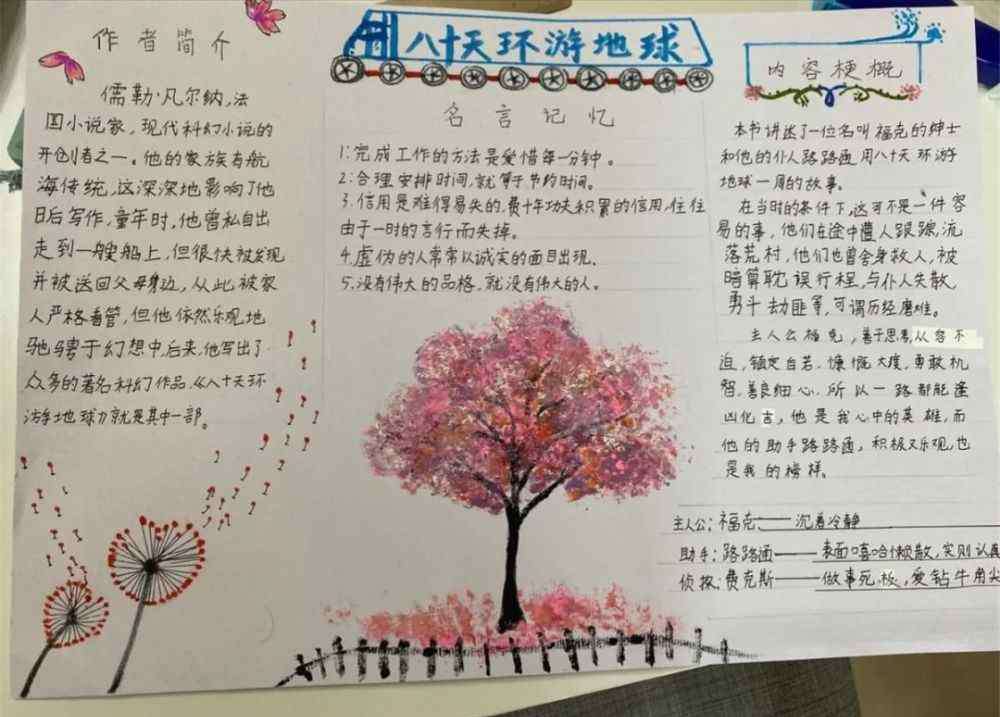 作者简介
儒勒·凡尔纳,法
国小说家,现代科幻小说的
开创者之一。他的家族有航
海传统,这深深地影响了他
日后写作,童年时,他曾私自出
走到一艘船上,但很快被发现
并被送回父母身边,从此被家
人严格看管,但他依然乐观地
驰骋于幻想中,后来,他写出了
众多的著名科幻作品,《八十天环
游地球》就是其中一部。
八十天环游地球
名言记忆
1:完成工作的方法是爱惜每一分钟。
2:合理安排时间,就等于节约时间。
3.信用是难得易失的,费十年功夫积累的信用,往往
由于一时的言行而失掉。
4.虚伪的人常常以诚实的面目出现。
5.没有伟大的品格,就没有伟大的人。
内容梗概
本书讲述了一位名叫福克的绅士
和他的仆人路路通用八十天环游
地球一周的故事。
在当时的条件下,这可不是一件容
易的事,他们在途中遭人跟踪,流
落荒村,他们也曾舍身救人,被
暗算耽误行程,与仆人失散,
勇斗劫匪等,可谓历经磨难。
主人公福克,善于思考,从容不
迫,镇定自若,慷慨大度,勇敢机
智,善良细心,所以一路都能逢
凶化吉,他是我心中的英雄,而
他的助手路路通,积极又乐观,也
是我的榜样。
主人公:福克——沉着冷静
助手:路路通——表面嘻哈懒散,实则认真
侦探:费克斯——做事死板,爱钻牛角尖